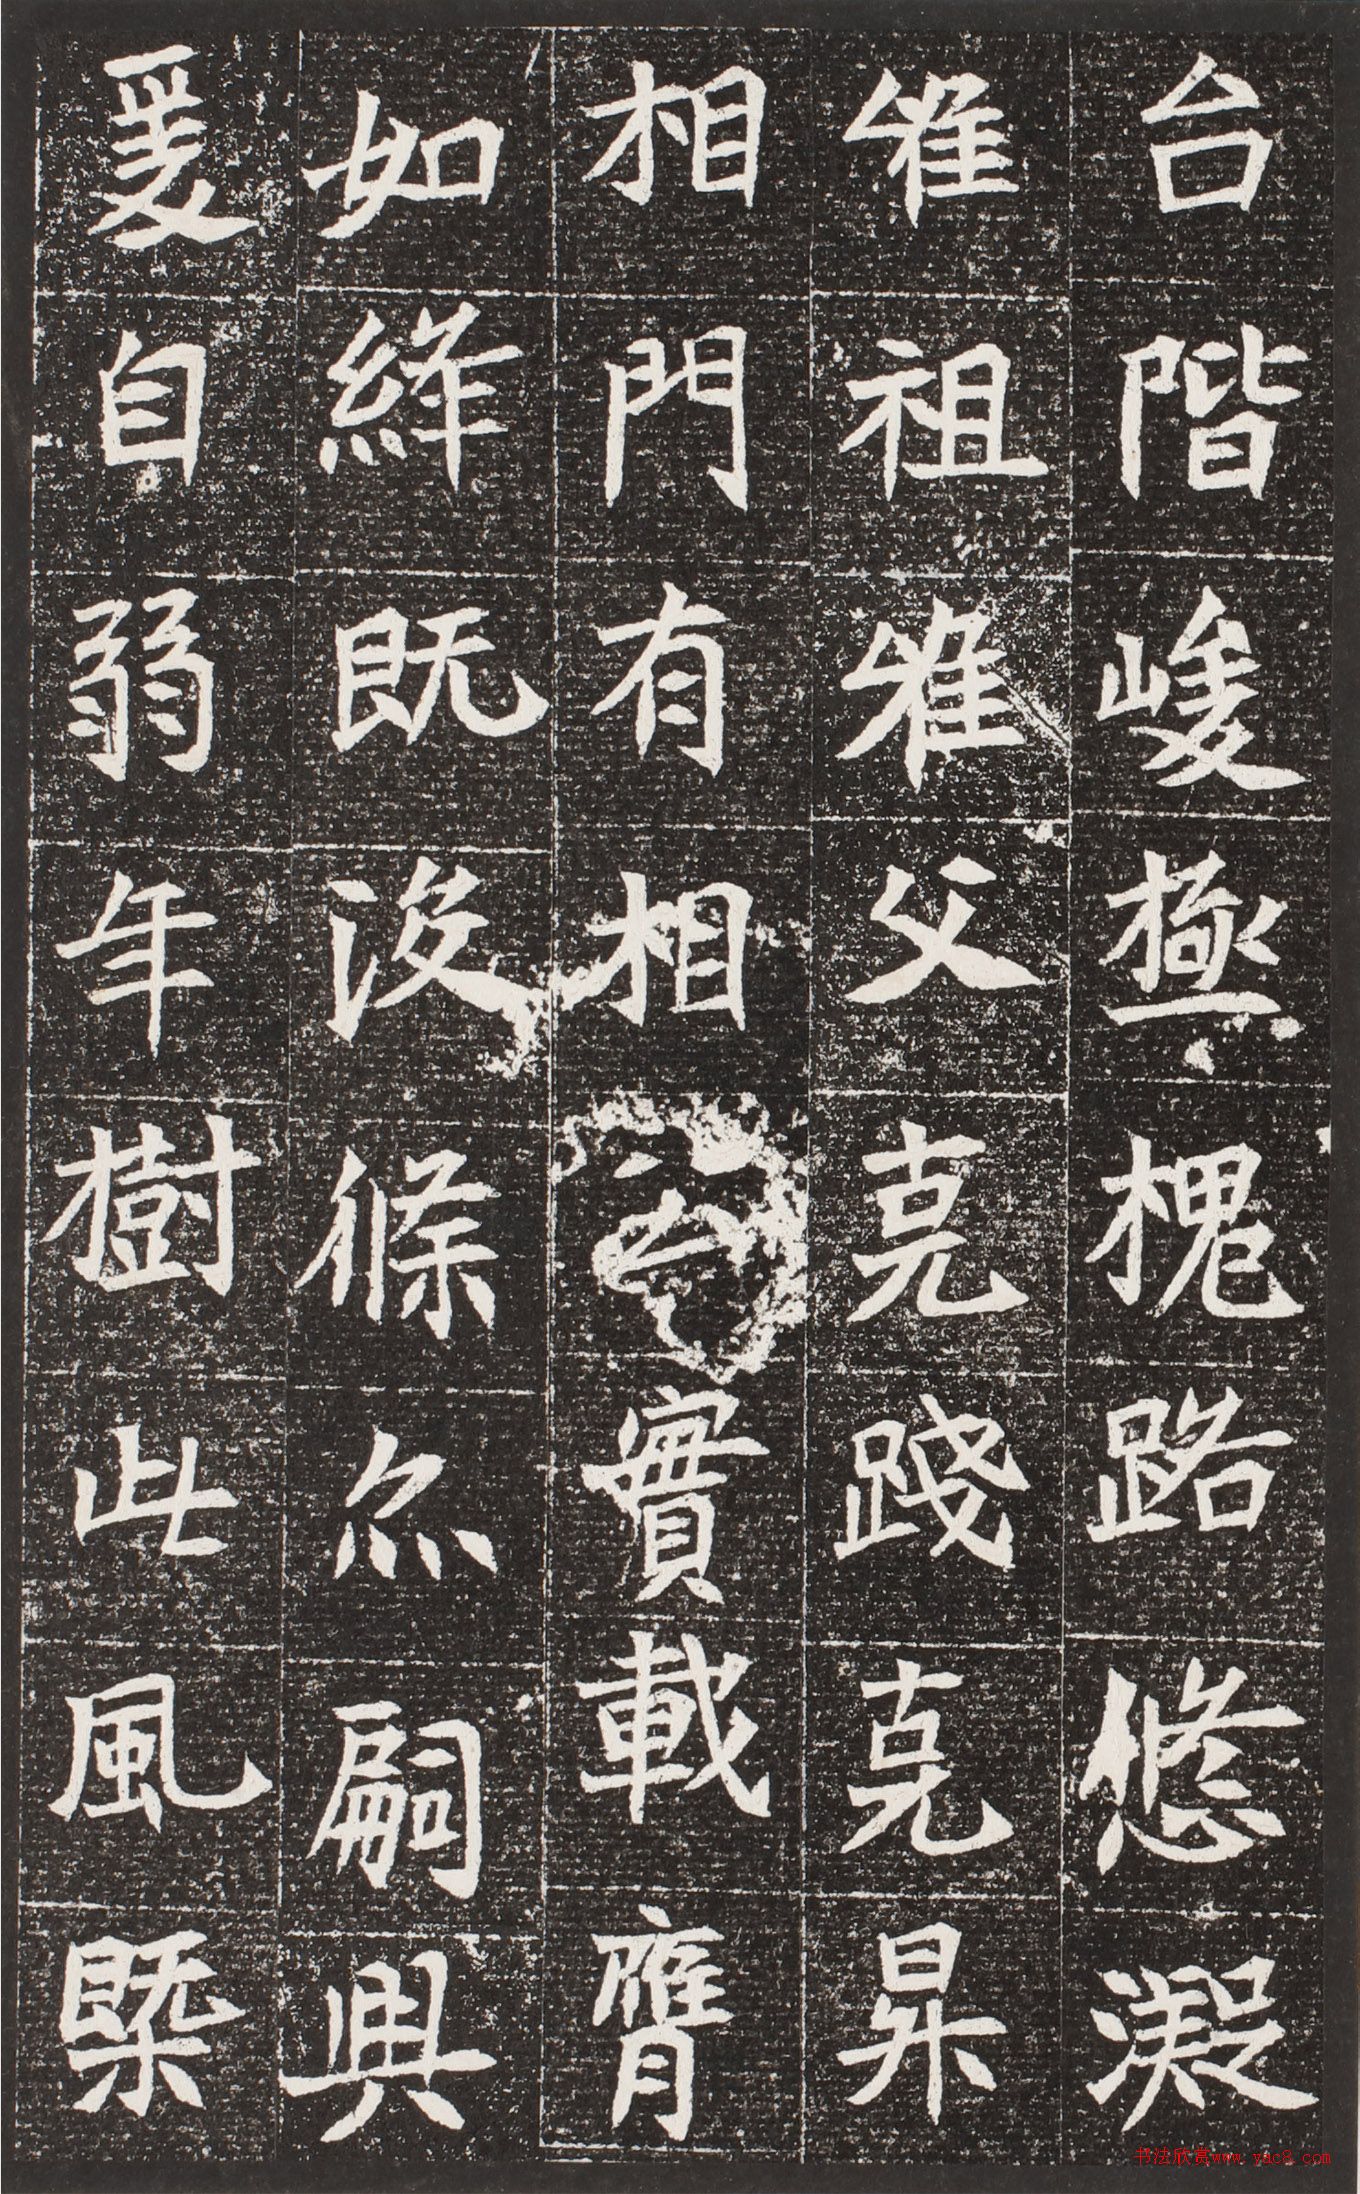 台階峻極槐路悠凝
唯祖唯父克踐克昇
相門有相實載膺
如綍既沒倏尒嗣興
爰自弱年樹此風槩
书法欣赏www.yac8.com